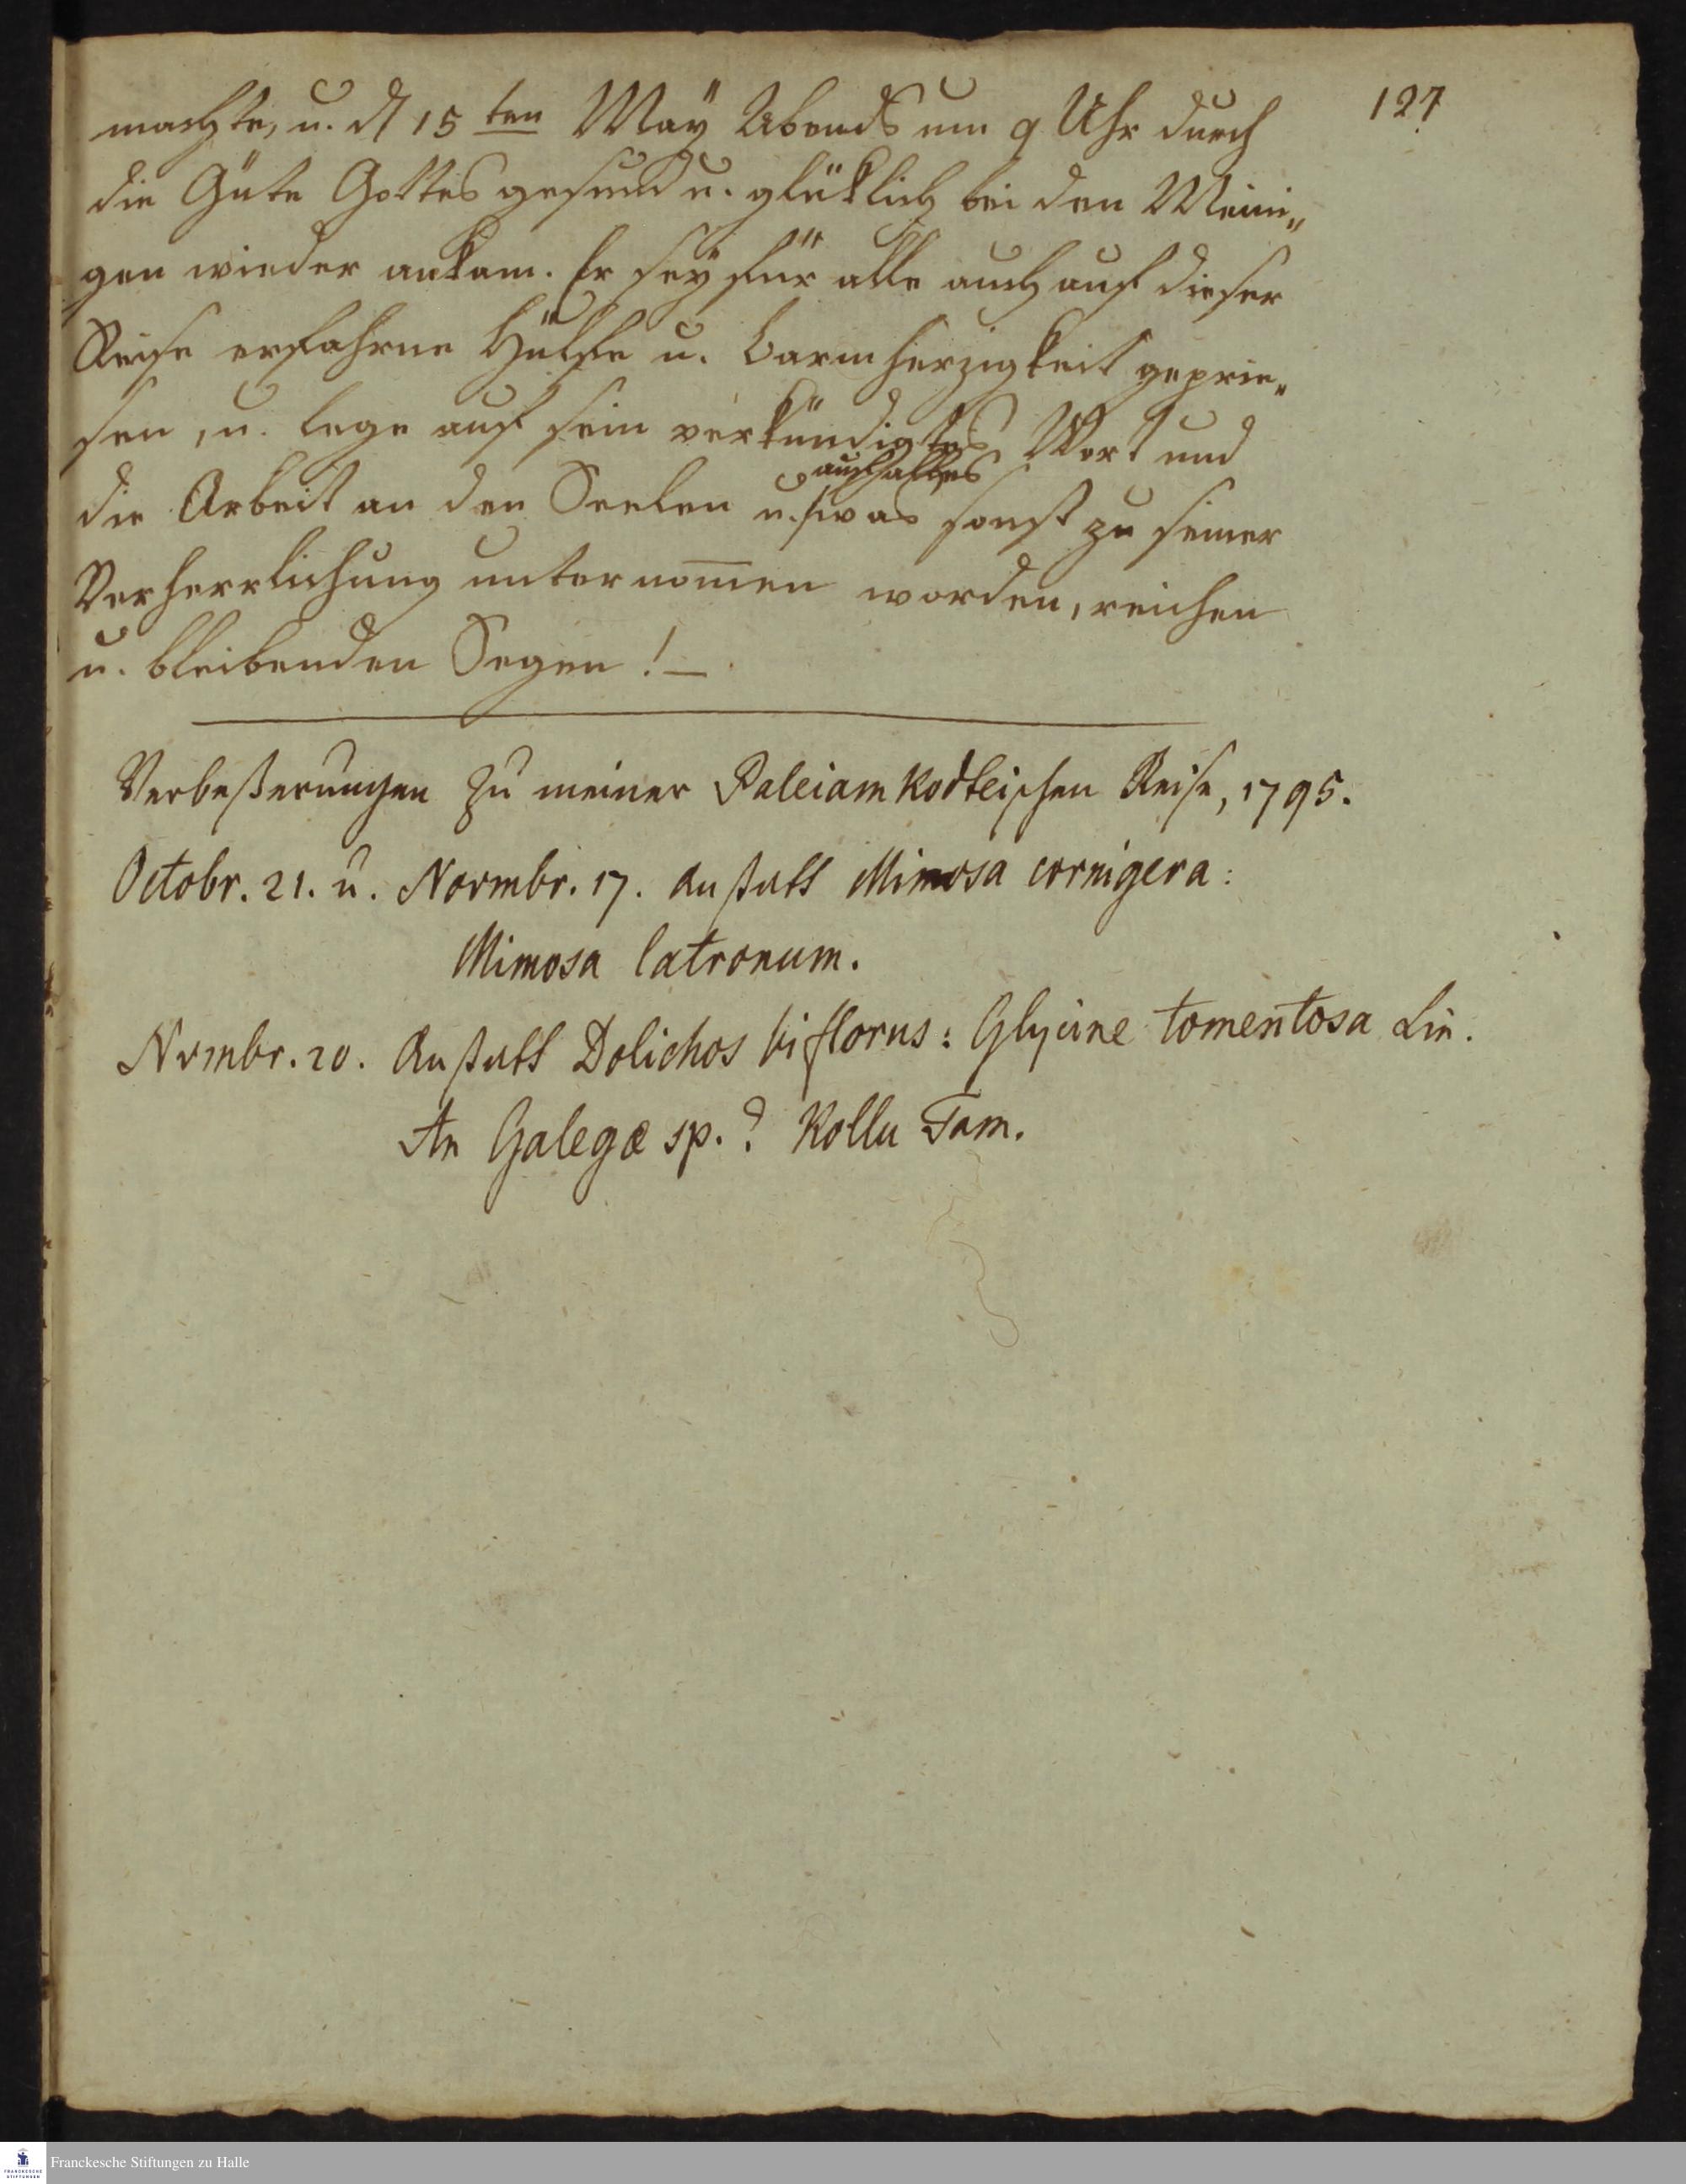 127
machte, u. d 15ten May Abends um 9 Uhr durch
die Güte Gottes gesund u. glüklich bei den Meini„
gen wieder ankam. Er sey für alle auch auf dieser
Reise erfahrne Hülfe u. Barmherzigkeit geprie„
sen, u. lege auf sein verkündigtes Wort und
auch alles
die Arbeit an den Seelen u. was sonst zu seiner
Verherrlichung unternom̅en worden, reichen
u. bleibenden Segen! —
Verbeßerungen zu meiner Paleiamkodteischen Reise, 1795.
Octobr. 21. u. Novmbr. 17. anstatt Mimosa cornigera:
Mimosa latronum.
Nvmbr. 20. Anstatt Dolichos biflorus: Glycine tomentosa Lin.
An Galegæ sp.? Kollu Tam.
Franckesche Stiftungen zu Halle
FRANCKESCHE
STIFTUNGEN